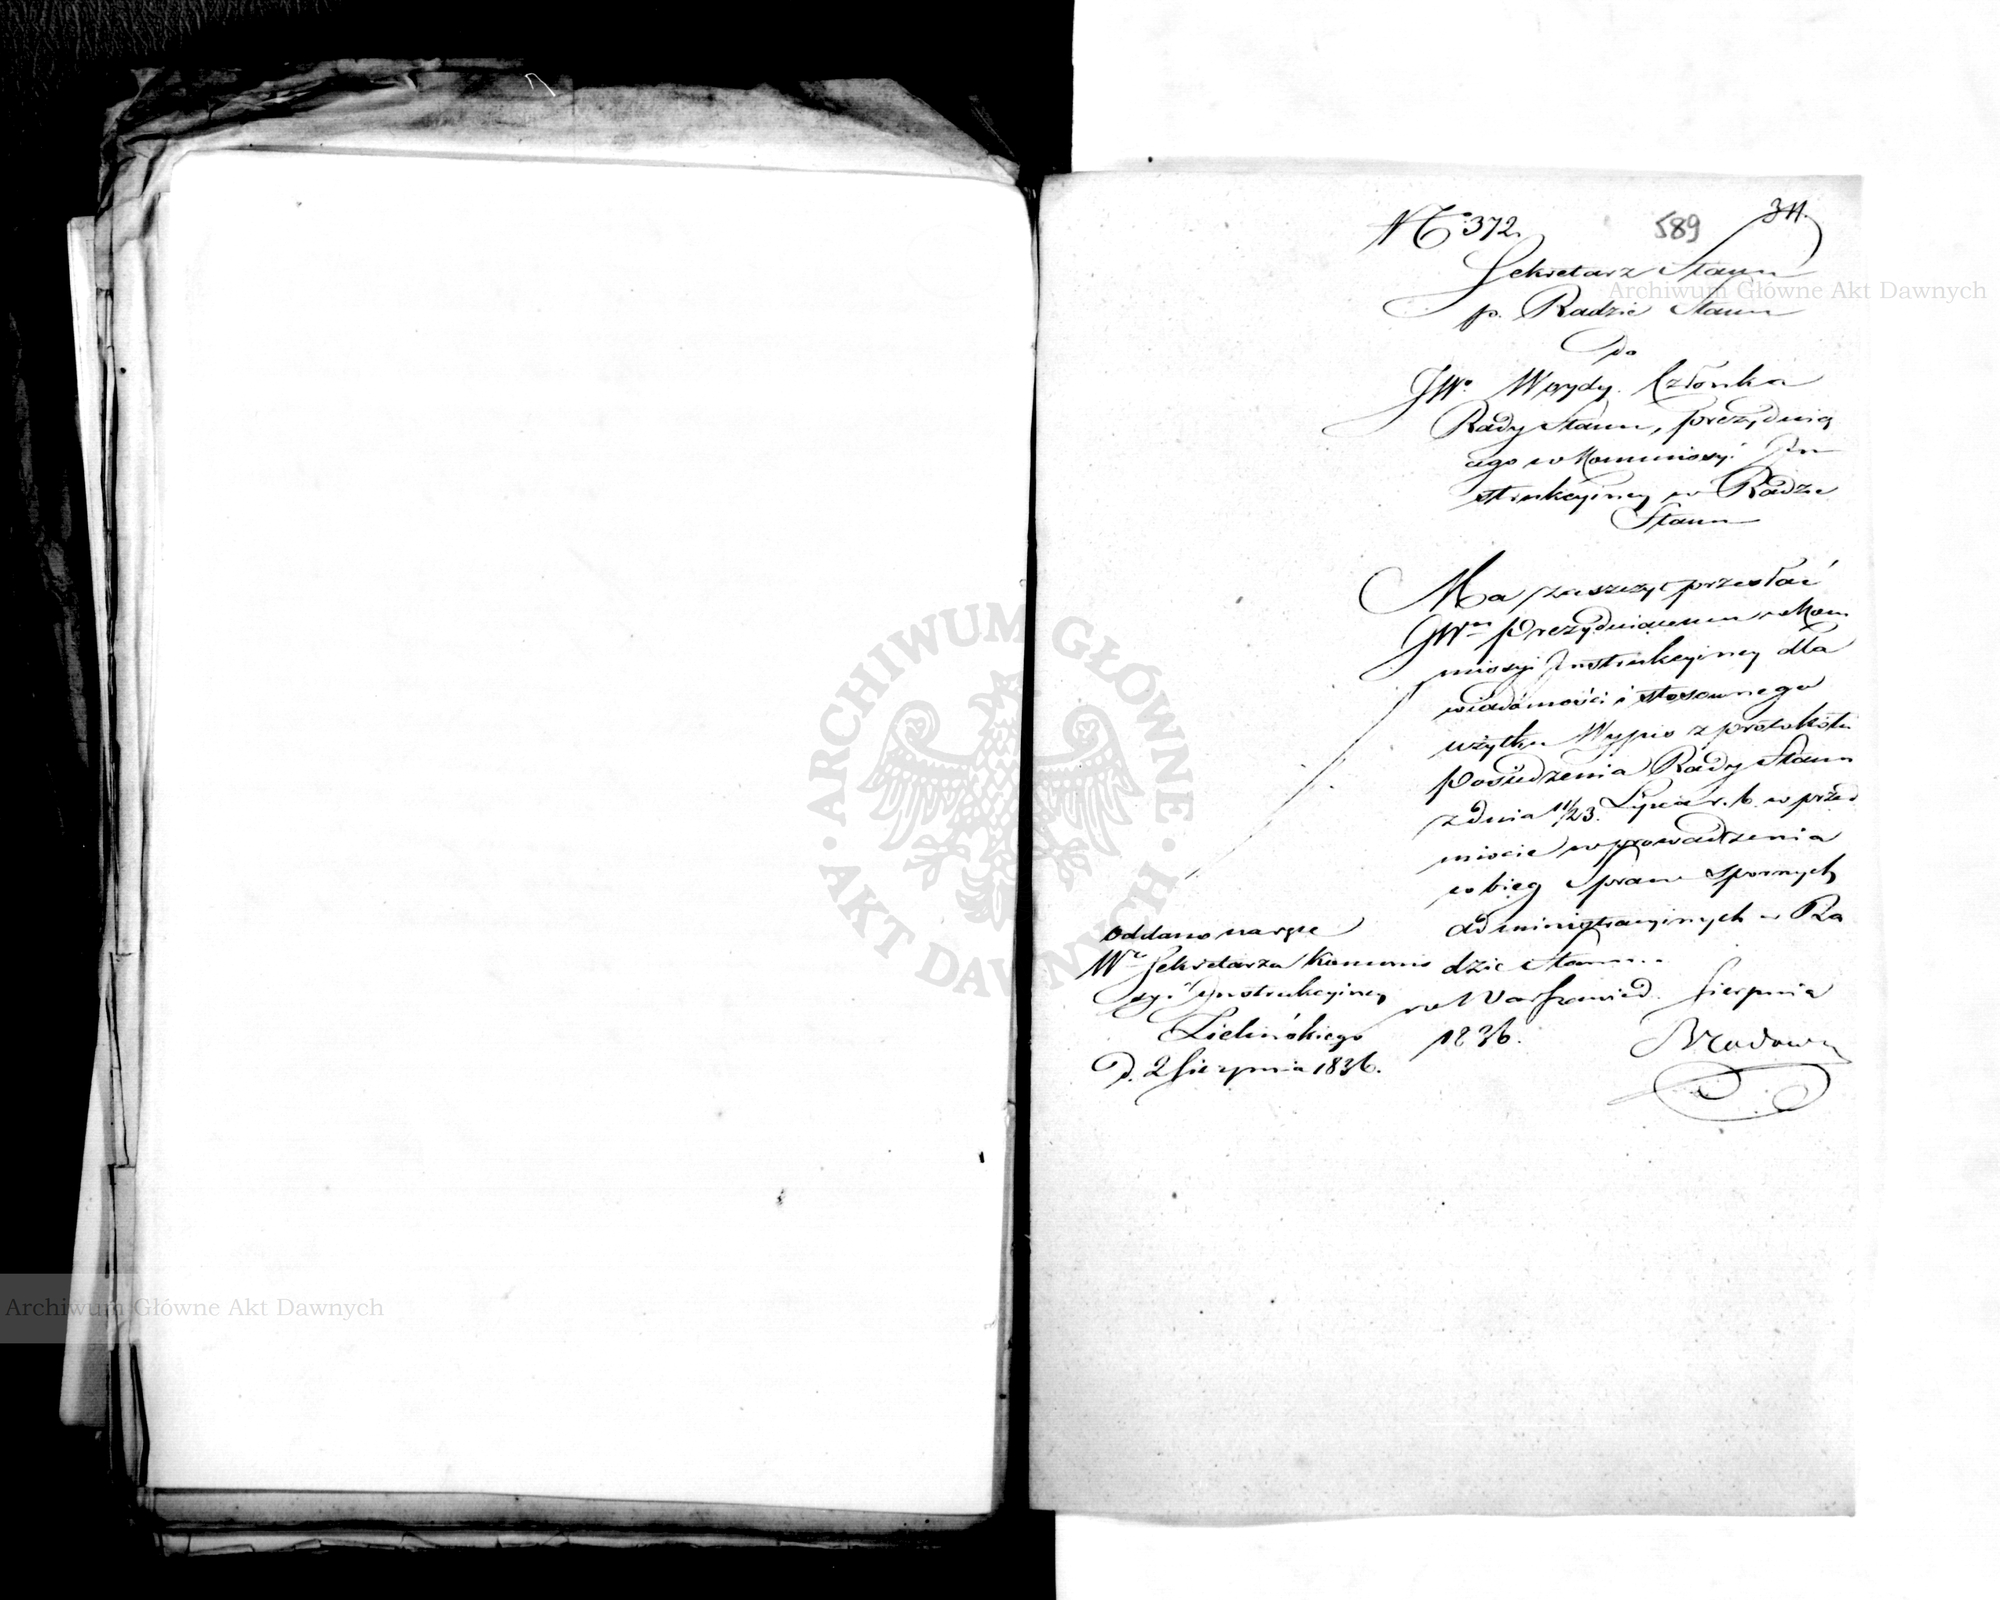 No 372.
589
311.
Sekretarz Stanu
p. Radzie Stanu
do
JWo Woydy. Członka
Rady Stanu, prezyduią
cego w Kommissyi In
strukcyiney w Radzie
Stanu
Ma zaszczyt przesłać
JWmu Prezyduiącemu w Kom
missyi Instrukcyiney dla
wiadomości i stosownego
użytku Wypis z protokółu
Posiedzenia Rady Stanu
z dnia 11/23. Lipca r. b. w przed
miocie wprowadzenia
w bieg spraw spornych
administracyinych w Ra
dzie Stanu.
w Warszawie d. Sierpnia
1836.
oddano na ręce
Wo Sekretarza Kommis
syi Instrukcyiney
Zielińskiego
D. 2 Sierpnia 1836.
Archiwum Główne Akt Dawnych
Archiwum Główne Akt Dawnych
ARCHIWUM GŁÓWNE
· AKT DAWNYCH ·